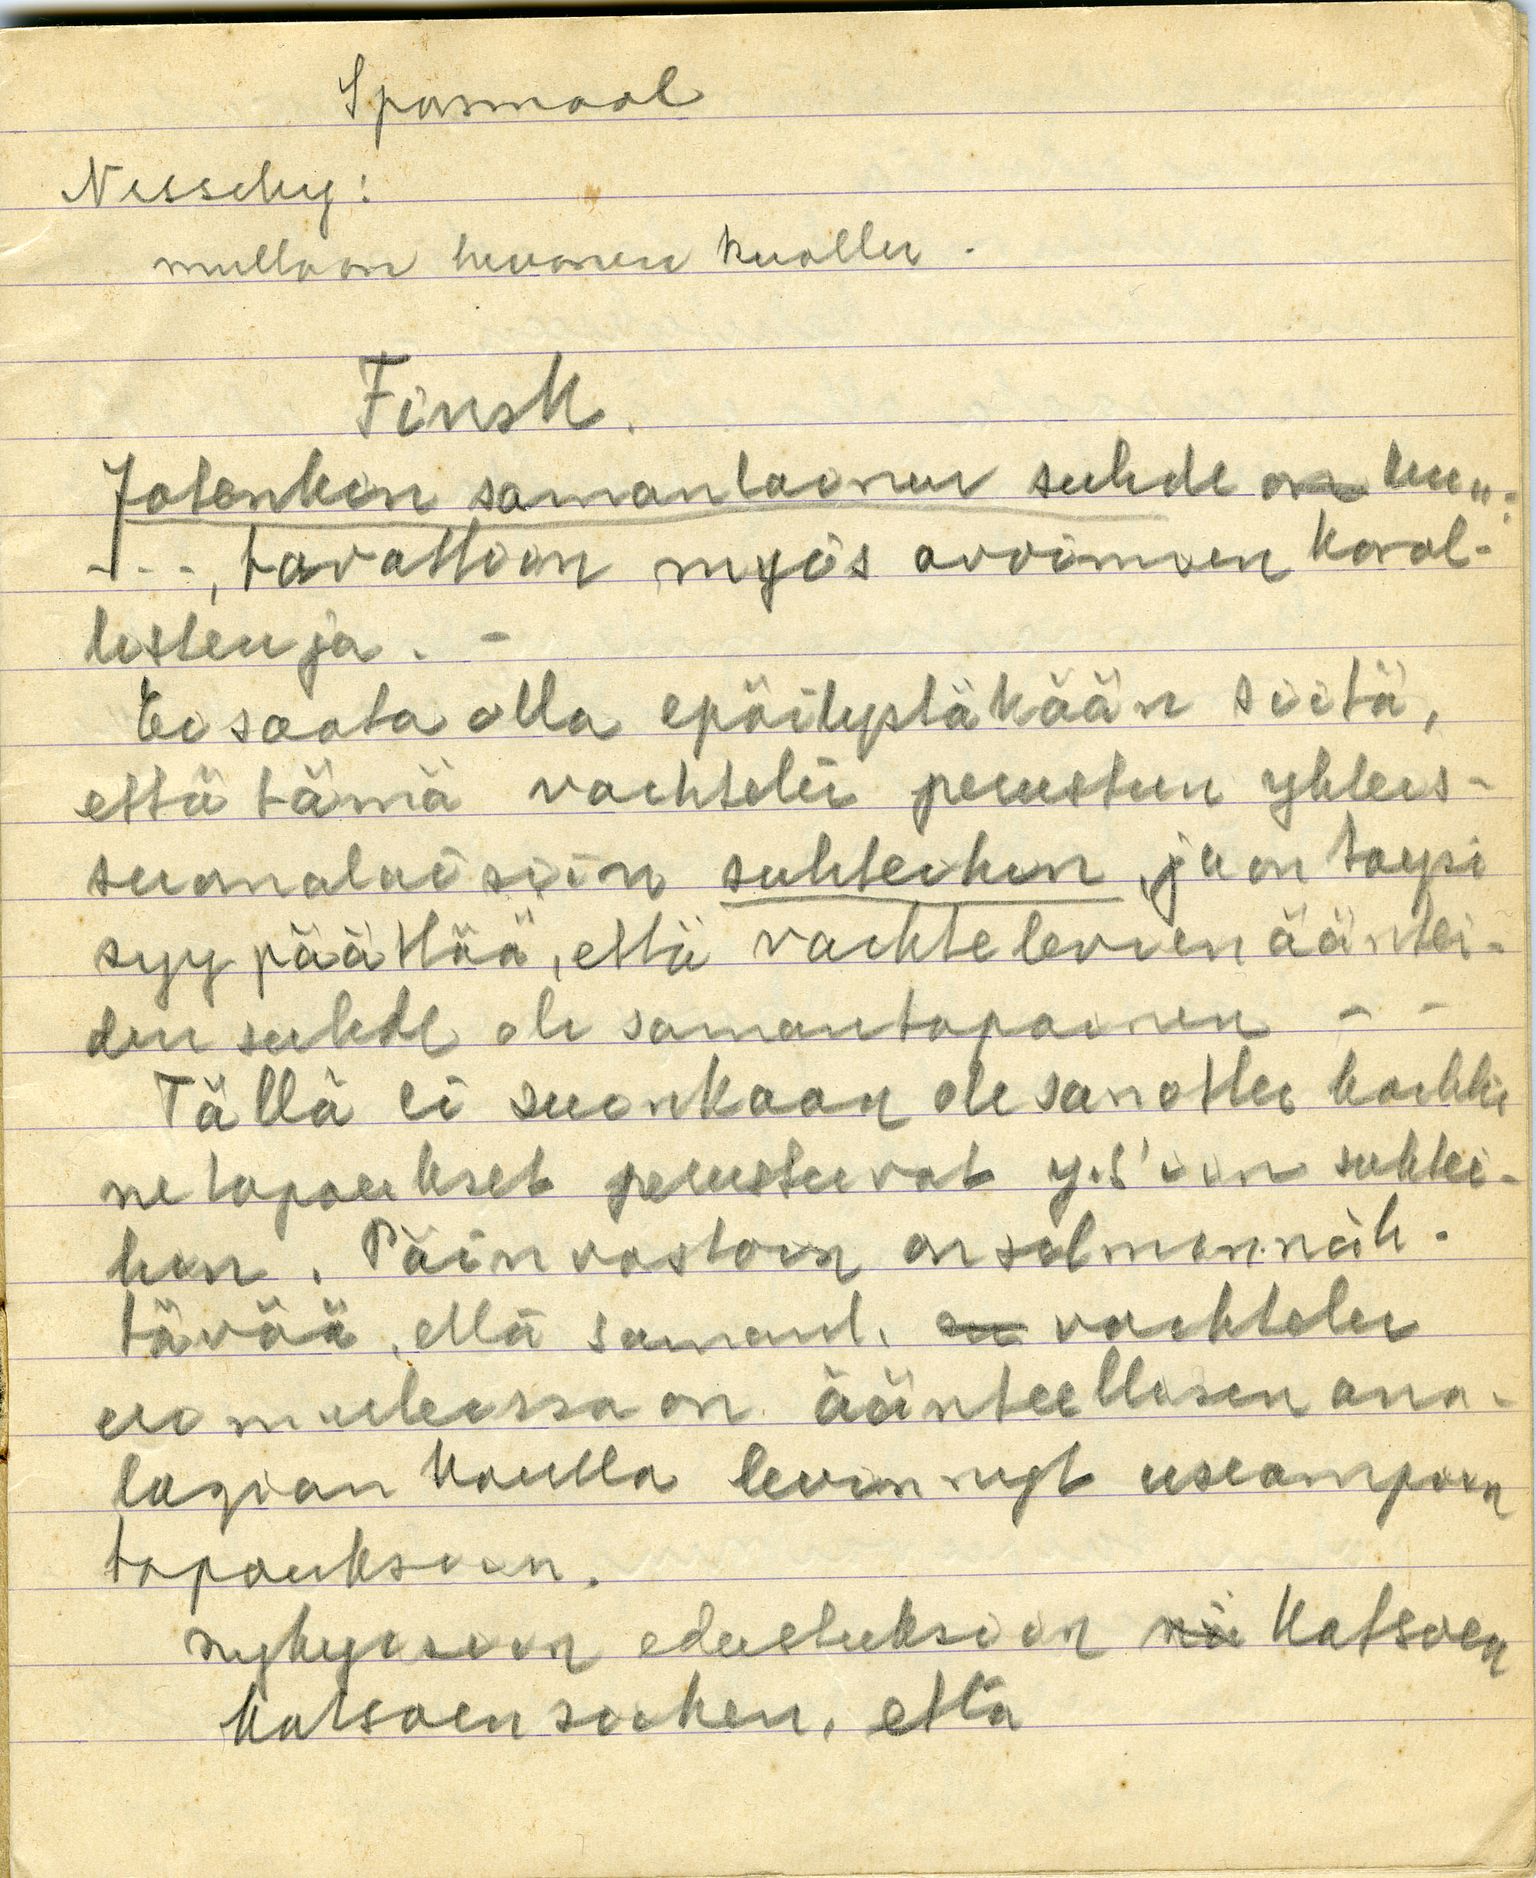 Sporsmaal
Nesseby:
mulla on hevonen kuollu.
Finsk.
Jotenkin samanlainen suhde on kuu":
---, tavattiin myös avoimien
ja. -
Ei saata olla epäilystäkään siitä,
että tämä vaihtelu perustuu yhteis-
suomalaisiin suhteihin, ja on täysi
syy päättää, että vaihtelevien äänтei-
den suhde oli samantapainen - -
Tällä ei suinkaan ole sanottu kaikki
ne tapaukset perustuvat y.s'iin suhtei-
hin. Päinvastoin on silminnäh-
tävää, että samanl. on vaihtelu
on äänteellisen ana-
logian kautta levinnyt useampiin
tapauksiin.
nykyisiin edustuksiin nii katsoen
katsoen siihen, että